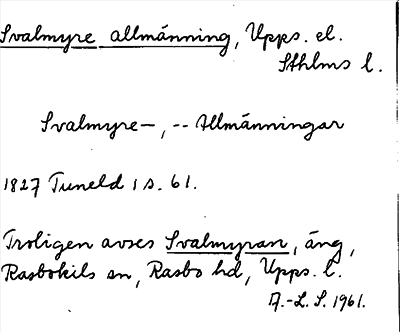 Svalmyre allmänning, Upps. el.
Sthlms l.
Svalmyre—, -- Allmänningar
1827 Tuneld 1 s. 61.
Troligen avses Svalmyran, äng,
Rasbokils sn, Rasbo hd, Upps. l.
A.-L. S. 1961.